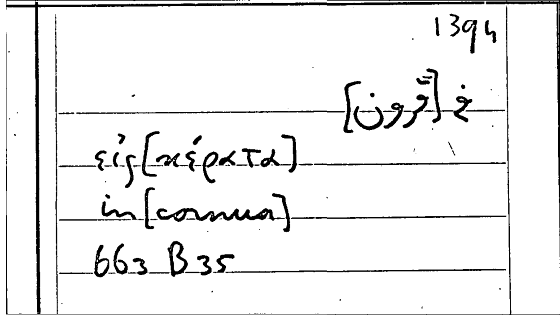 1394
في [قرون]
εἰς [κέρατα]
in [cornua]
663 B 35